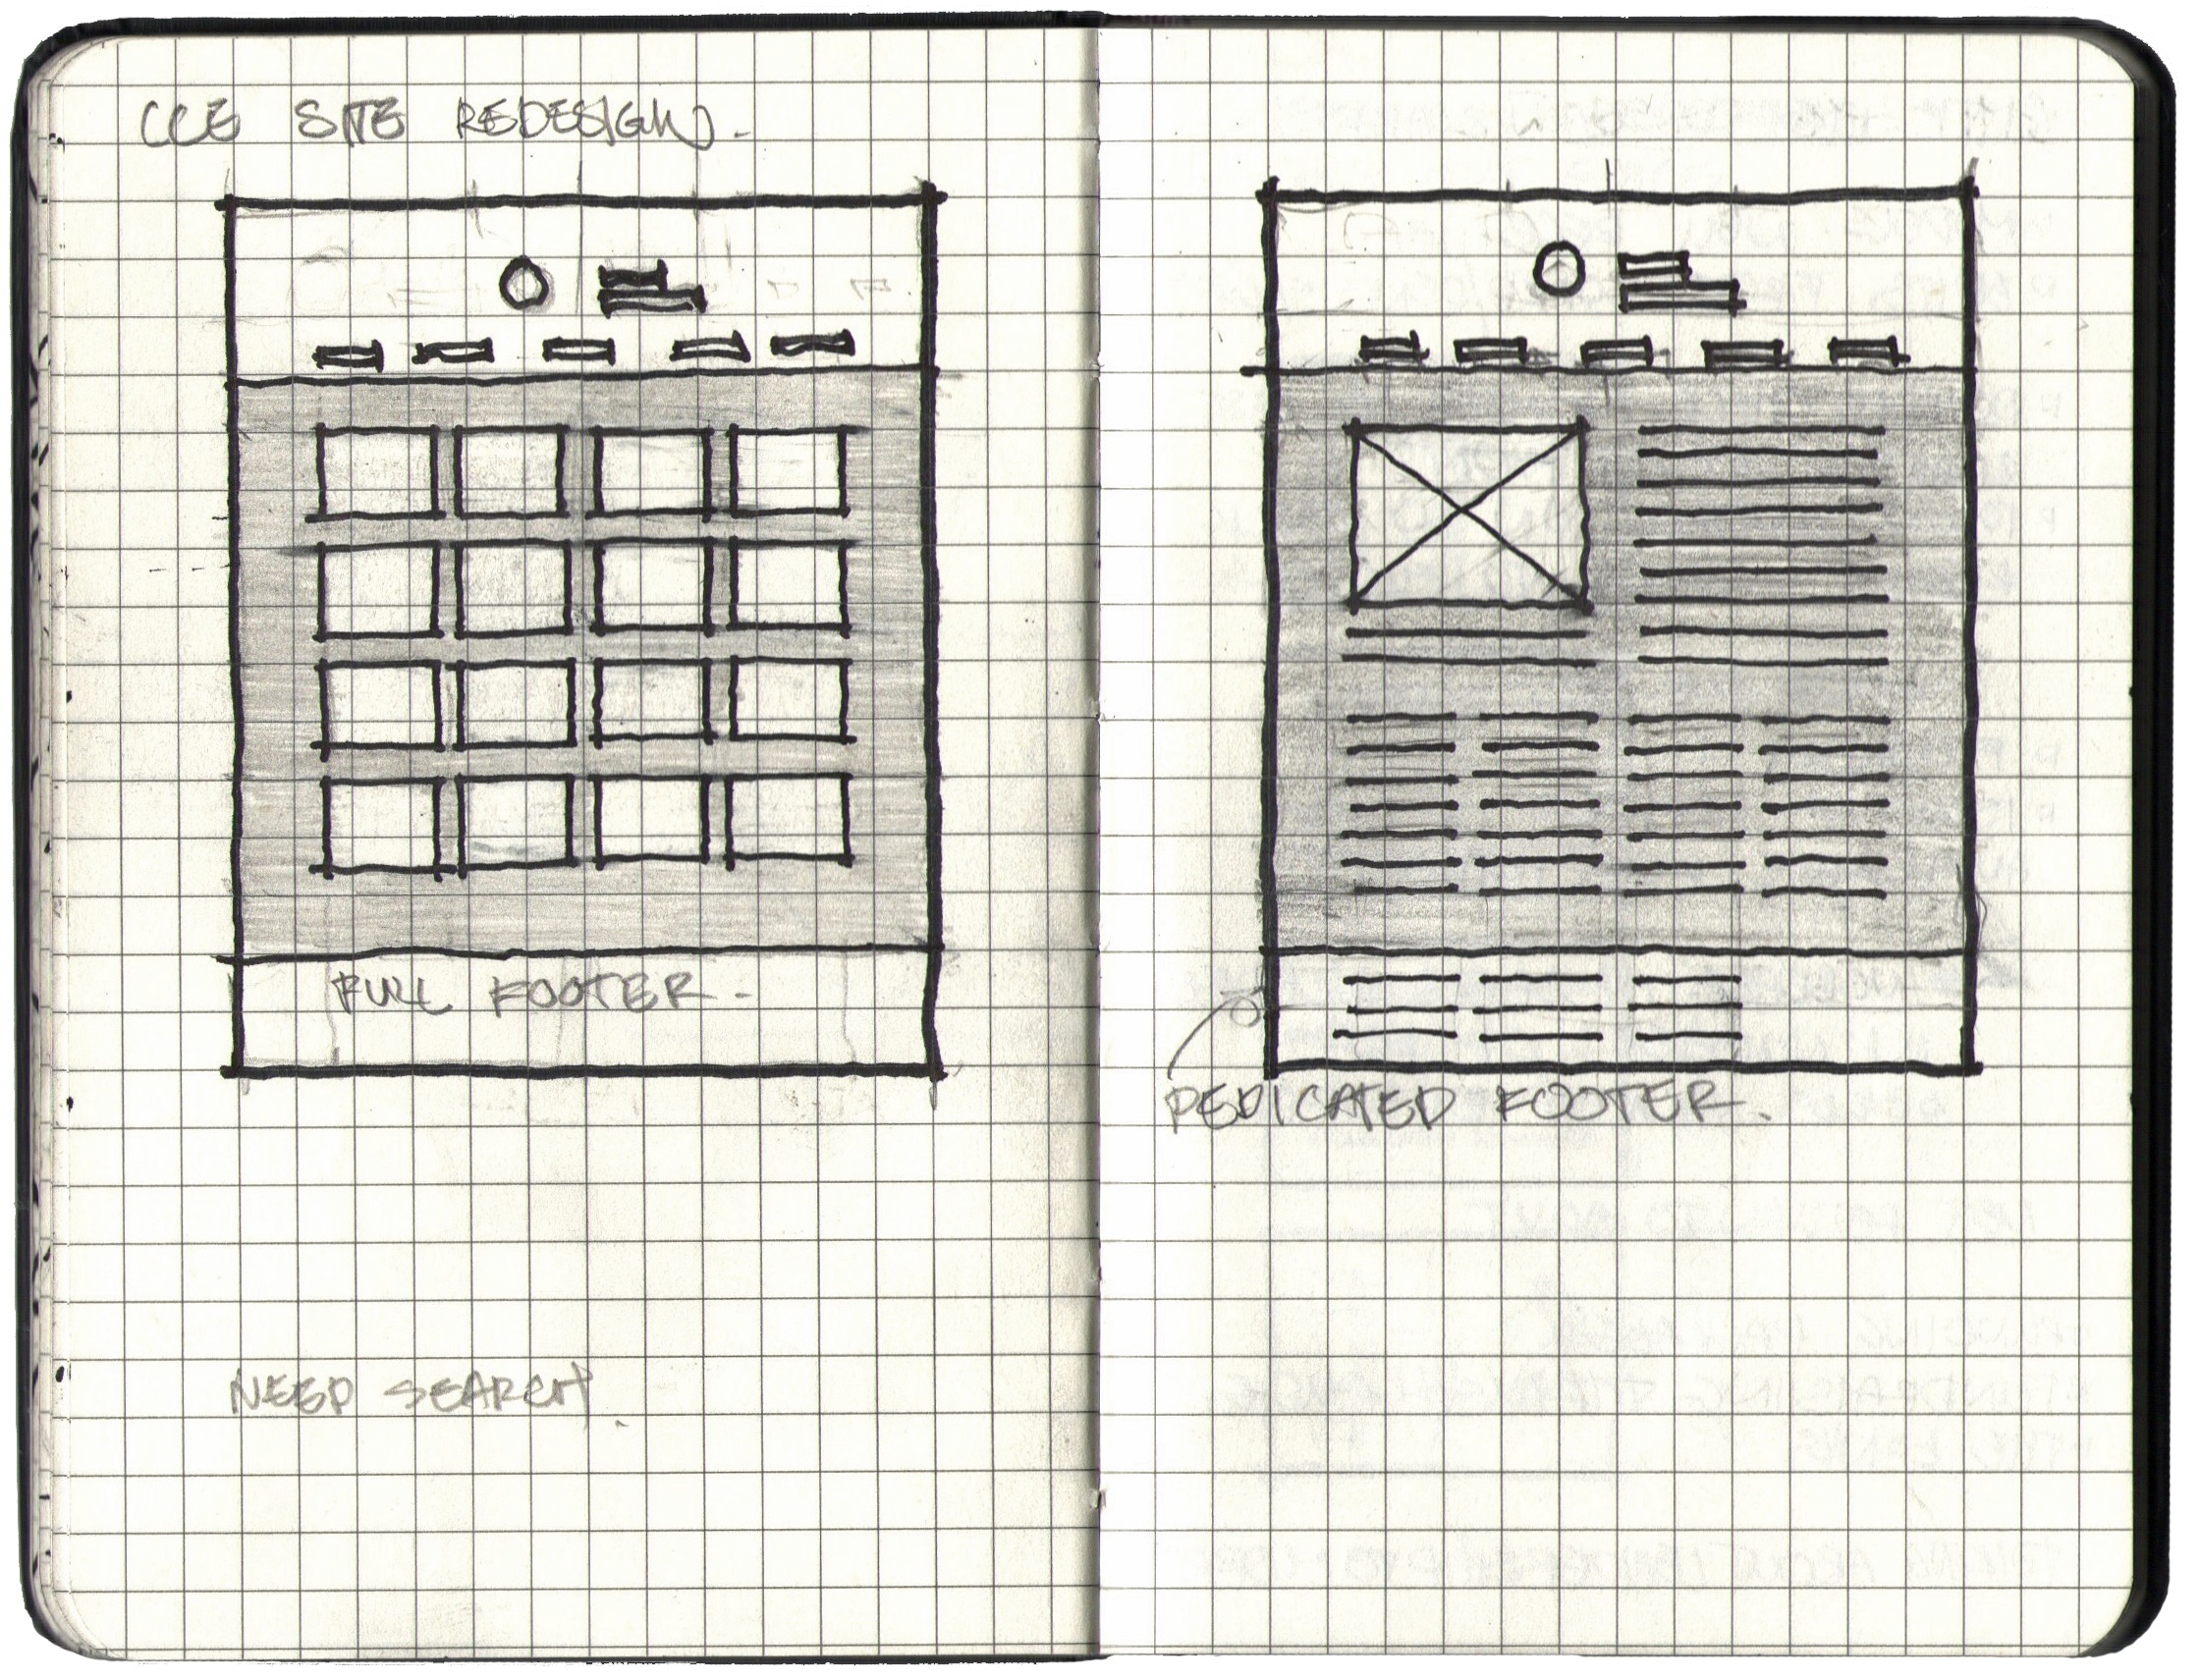 CCE SITE REDESIGN.
FULL FOOTER.
NEED SEARCH
DEDICATED FOOTER.